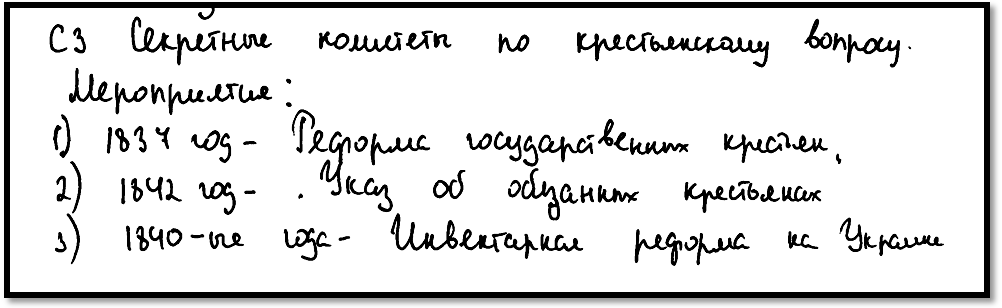 С3 Секретные комитеты по крестьянскому вопросу.
Мероприятия:
1) 1837 год - Реформа государственных крестьян.
2) 1842 год - . Указ об обязанных крестьянах
3) 1840-ые года - Инвентарная реформа на Украине